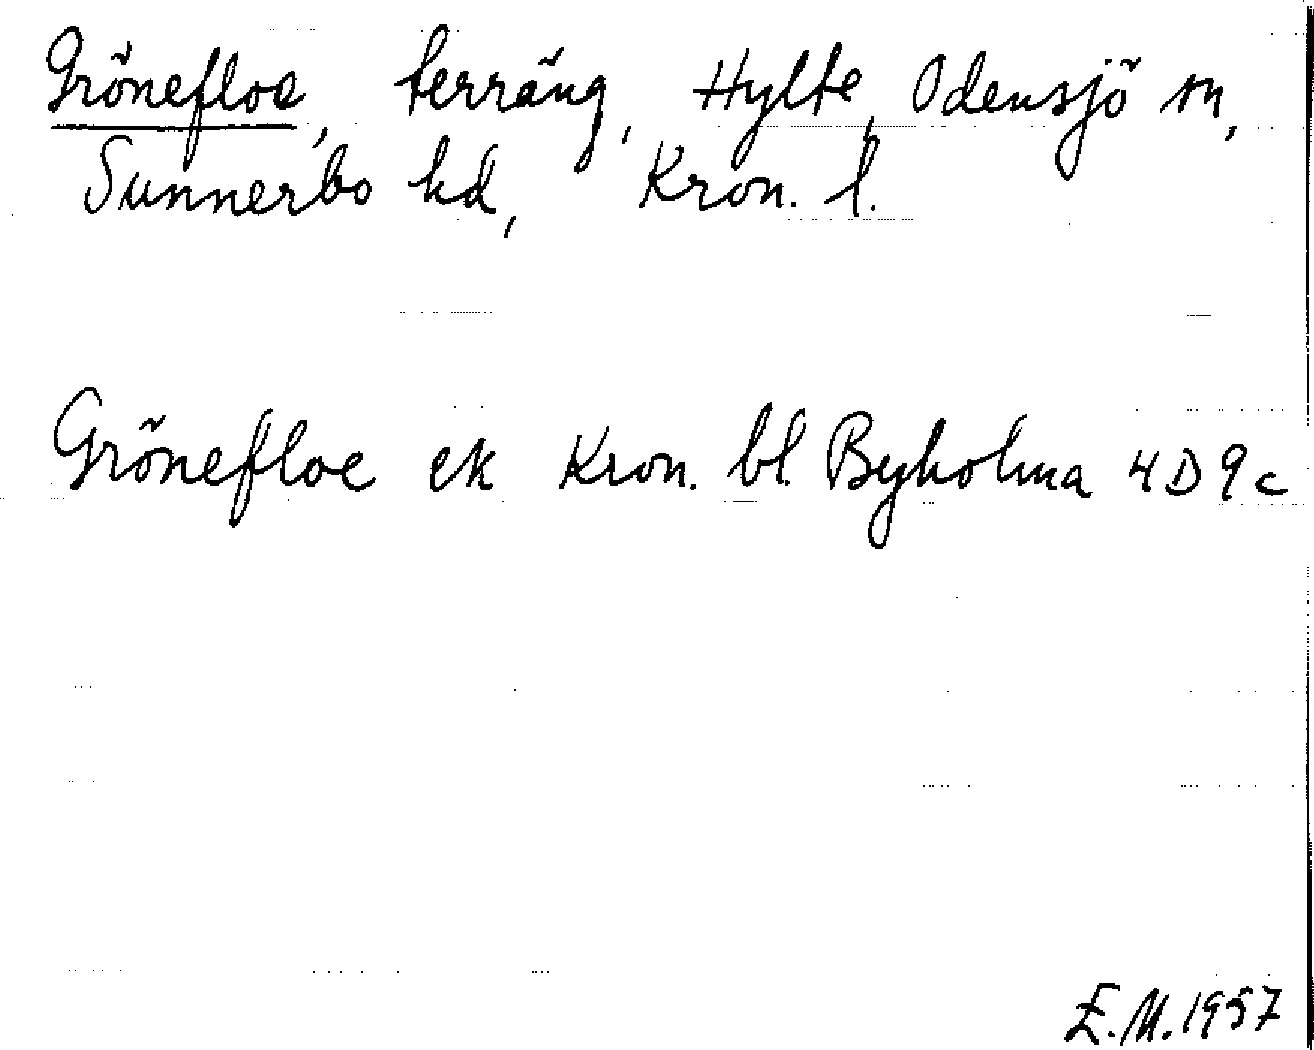 Grönefloe, terräng, Hylte, Odensjö sn,
Sunnerbo hd, Kron. l.
Grönefloe ek Kron. bl Byholma 4D9c
E.M. 1957